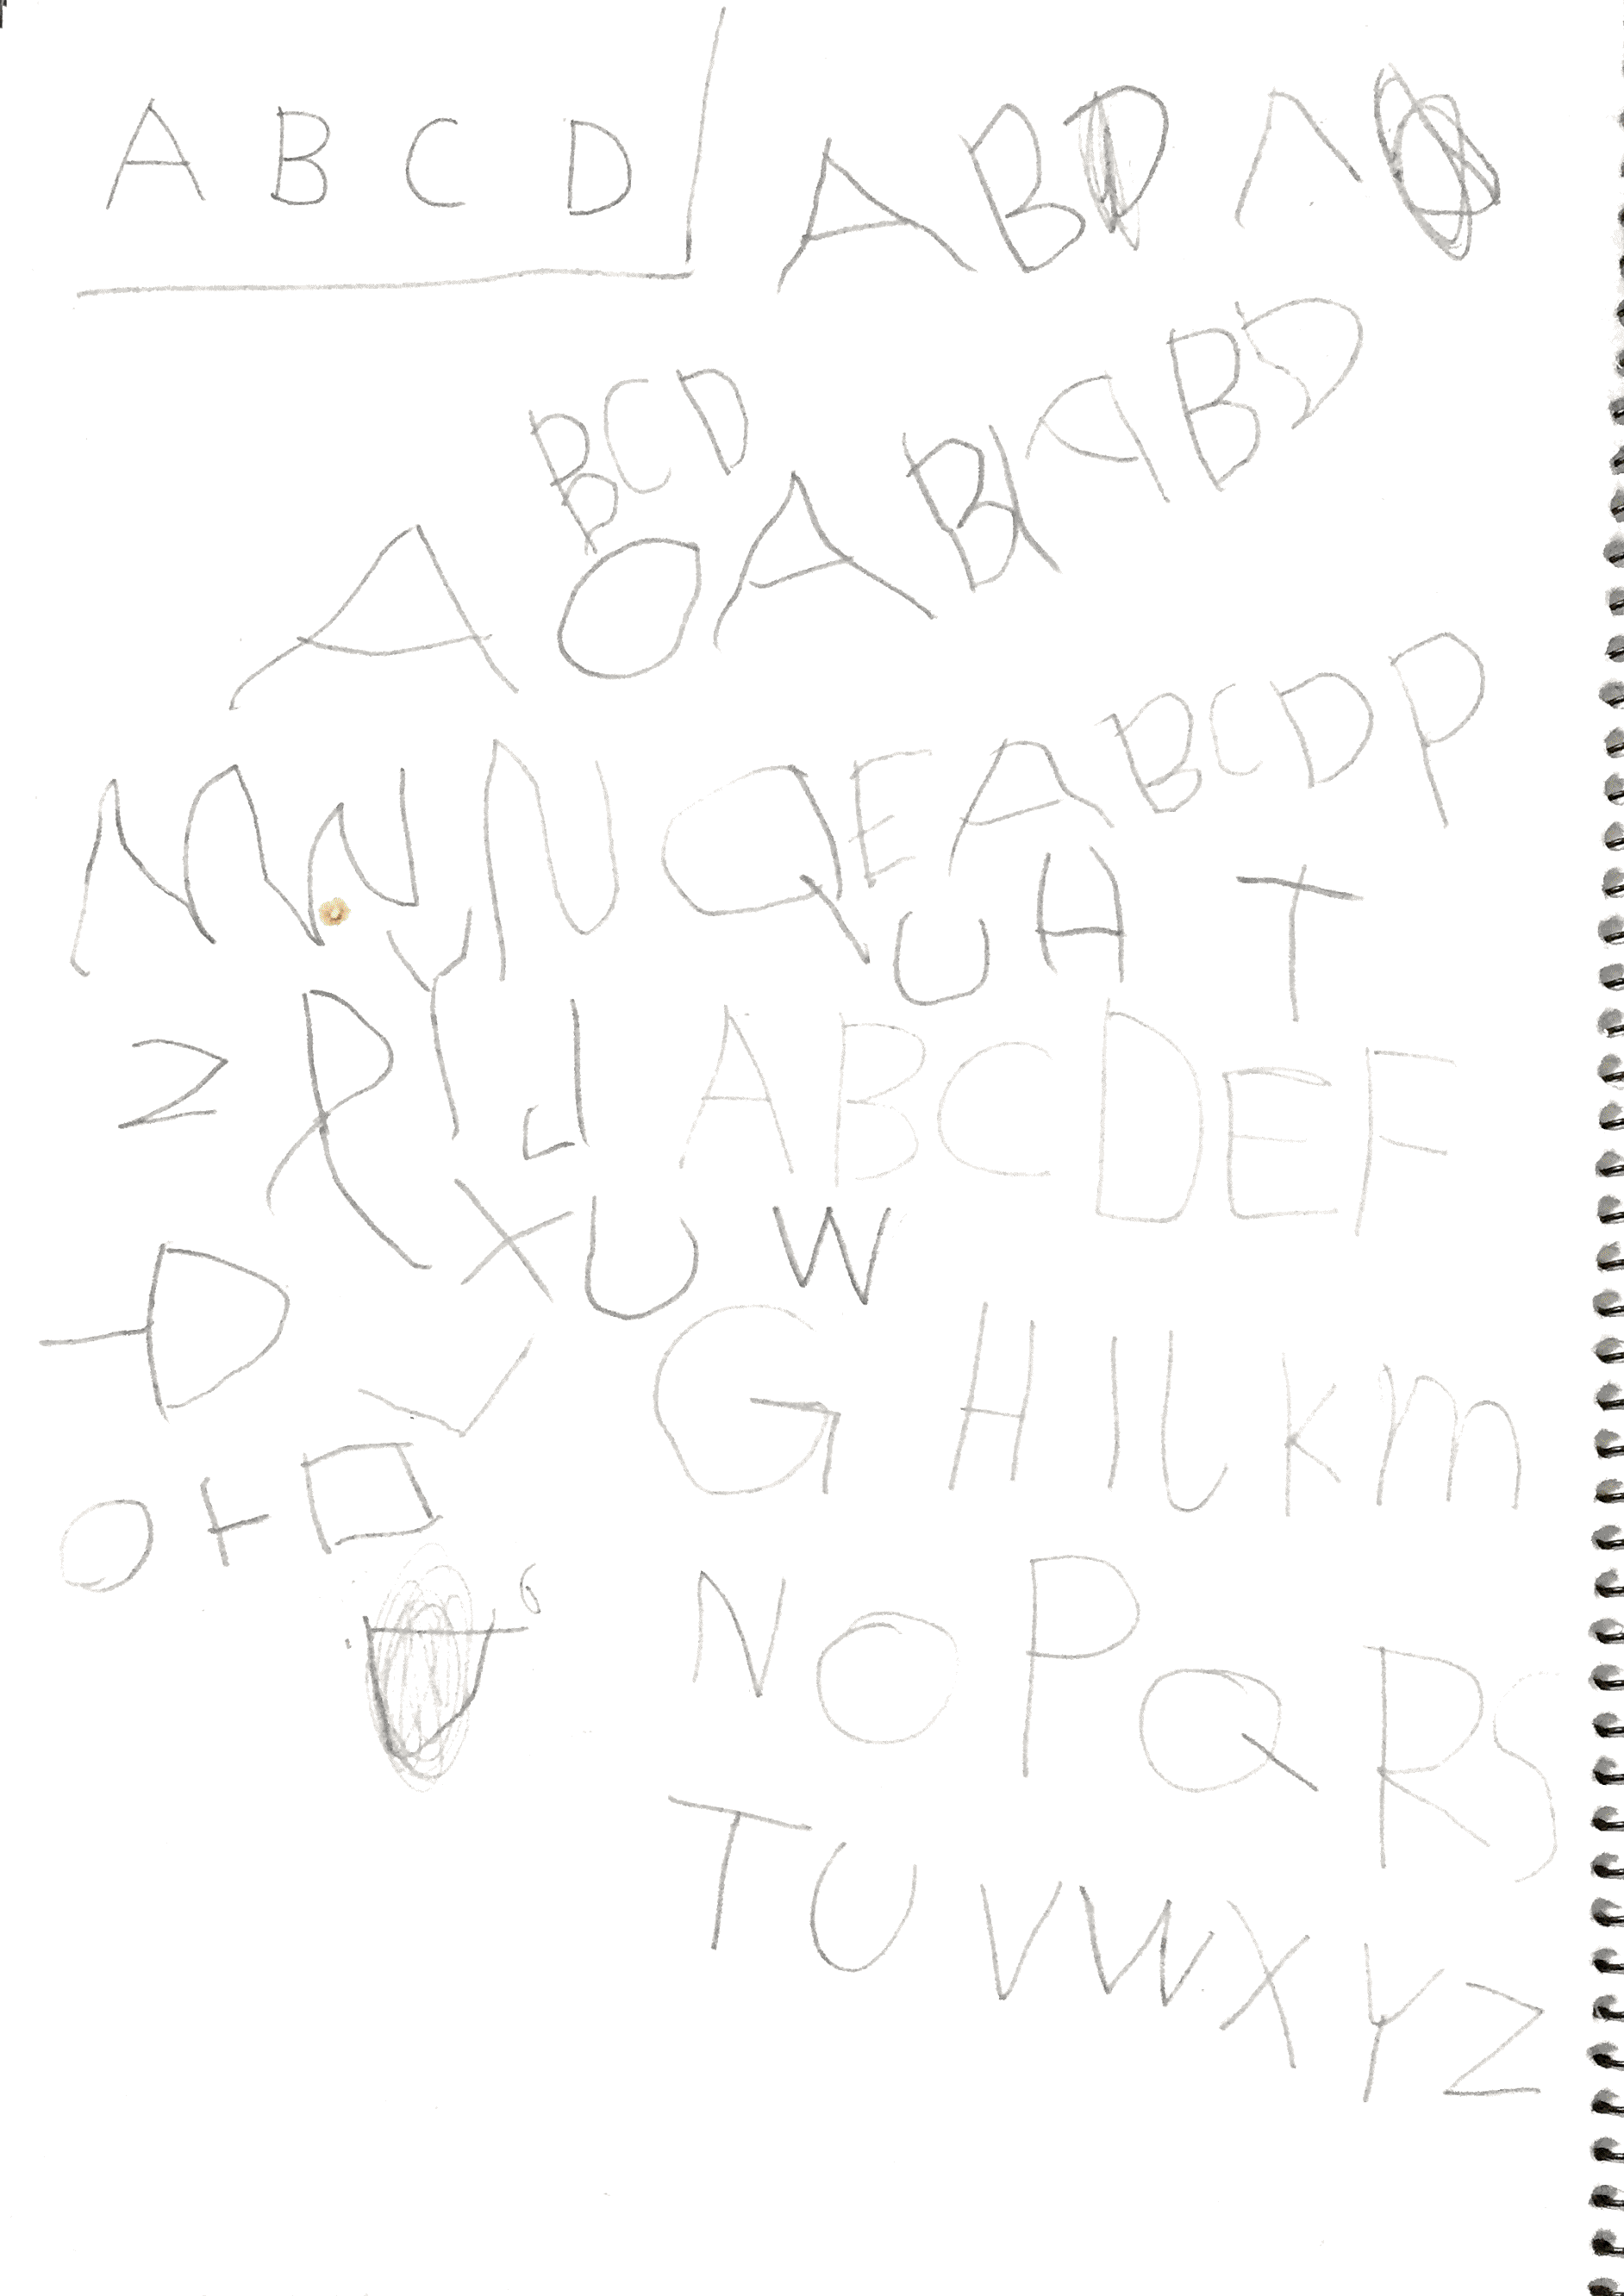 A B C D
A B D A
B C D
A B A B D
A O A B
M N N Q E A B C D P
Y U H T
Z R J A B C D E F
X U W
D
G H I L K m
O + □
N O P Q R S
T U V W X Y Z